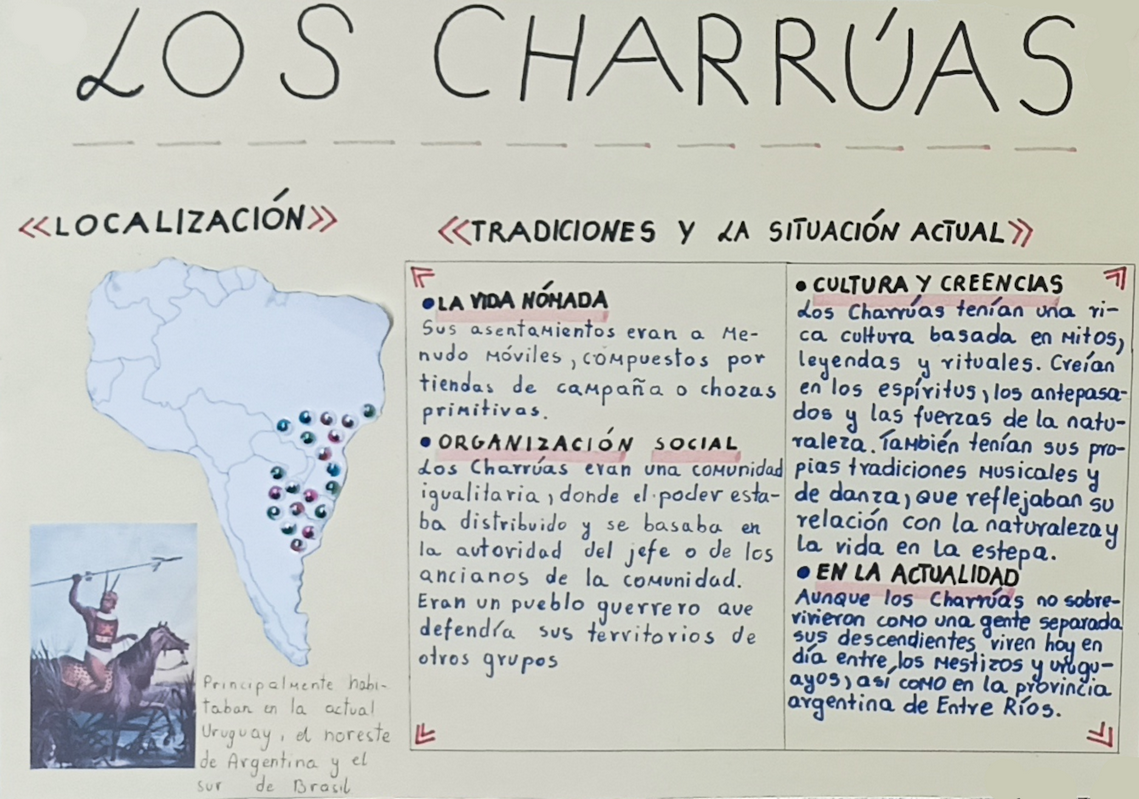 LOS CHARRÚAS
<<LOCALIZACIÓN>>
Principalmente habi-
taban en la actual
Uruguay, el noreste
de Argentina y el
sur de Brasil
<<TRADICIONES Y LA SITUACIÓN ACTUAL>>
• LA VIDA NÓMADA
Sus asentamientos eran a me-
nudo móviles, compuestos por
tiendas de campaña o chozas
primitivas.
• ORGANIZACIÓN SOCIAL
Los Charrúas eran una comunidad
igualitaria, donde el poder esta-
ba distribuido y se basaba en
la autoridad del jefe o de los
ancianos de la comunidad.
Eran un pueblo guerrero que
defendía sus territorios de
otros grupos
• CULTURA Y CREENCIAS
Los Charrúas tenían una ri-
ca cultura basada en mitos,
leyendas y rituales. Creían
en los espíritus, los antepasa-
dos y las fuerzas de la natu-
raleza. También tenían sus pro-
pias tradiciones musicales y
de danza, que reflejaban su
relación con la naturaleza y
la vida en la estepa.
• EN LA ACTUALIDAD
Aunque los Charrúas no sobre-
vivieron como una gente separada
sus descendientes viven hoy en
día entre los mestizos y urugu-
ayos, así como en la provincia
argentina de Entre Ríos.